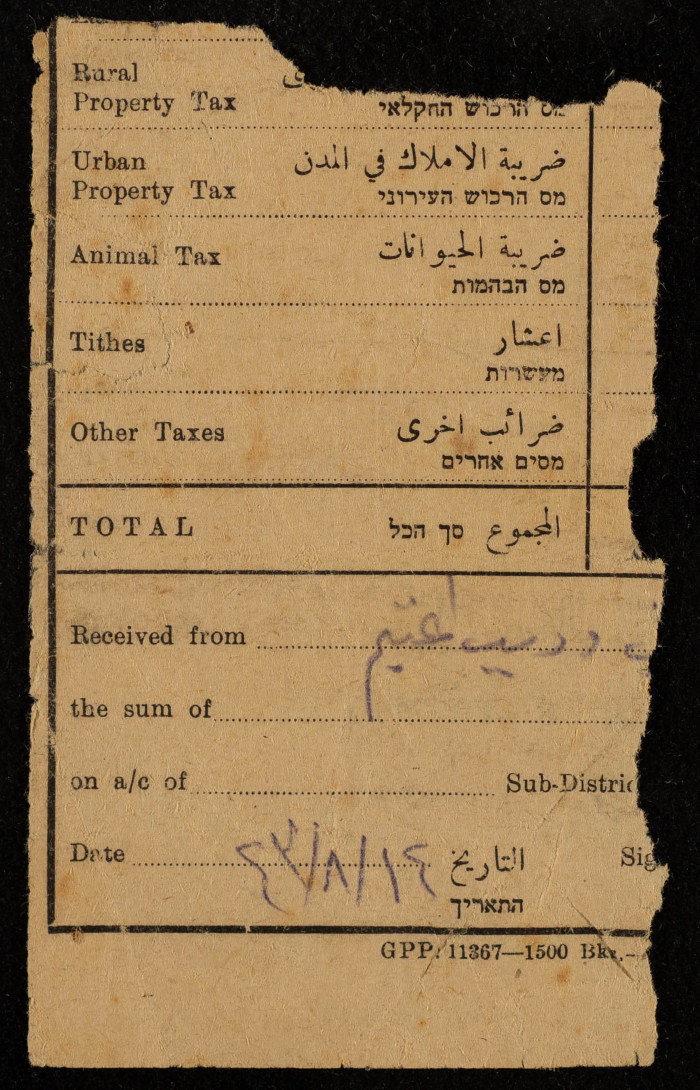 Rural
Property Tax
מס הרכוש החקלאי
Urban
Property Tax
ضريبة الاملاك في المدن
מס הרכוש העירוני
Animal Tax
ضريبة الحيوانات
מס הבהמות
Tithes
اعشار
מעשרות
Other Taxes
ضرائب اخرى
מסים אחרים
TOTAL סך הכל المجموع
Received from
the sum of
on a/c of Sub-Distric
Date التاريخ Sig
התאריך
GPP. 11367—1500 Bks.—